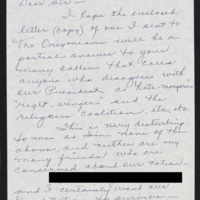 Dear Sir –
I hope the enclosed
letter (copy) of one I sent to
The Oregonian will be a
partial answer to your
many callers that calls
anyone who disagrees with
our President as "hate-mongers"
"right-wingers" and the
religious coalition, etc, etc
This is very disturbing
to me as I'm none of the
above, and neither are my
many friends who are
concerned about our nation –
and I certainly want our